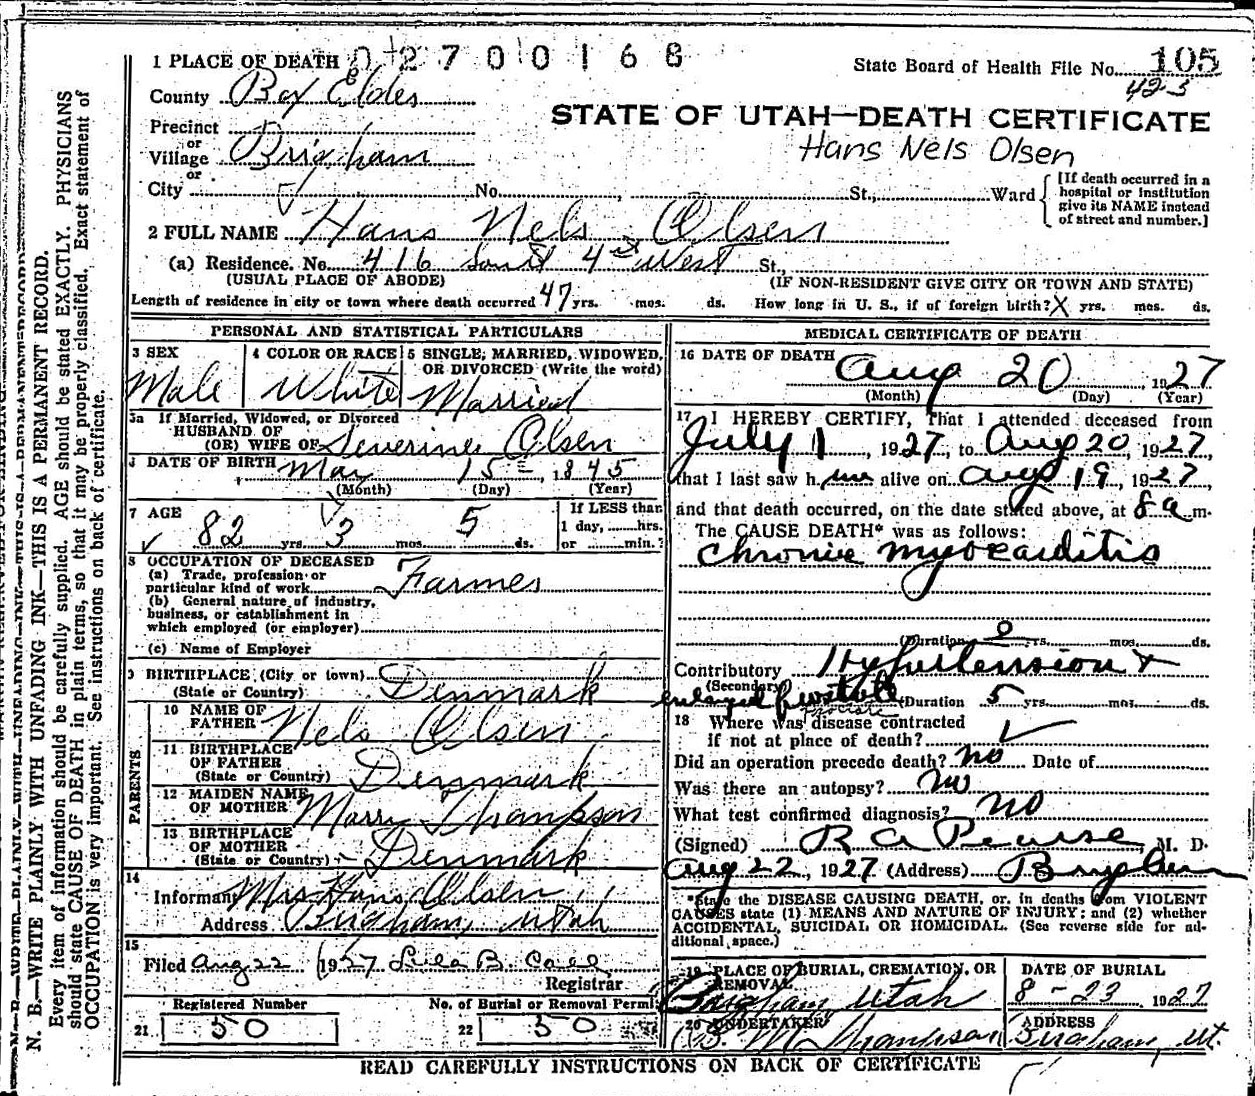 1 PLACE OF DEATH 02700168
State Board of Health File No. 105
423
County Box Elder
STATE OF UTAH—DEATH CERTIFICATE
Precinct
or
Village Brigham
Hans Nels Olsen
or
City No. St., Ward
[If death occurred in a
hospital or institution
give its NAME instead
of street and number.]
2 FULL NAME Hans Nels Olsen
(a) Residence. No. 416 South 4th West St.,
(USUAL PLACE OF ABODE) (IF NON-RESIDENT GIVE CITY OR TOWN AND STATE)
Length of residence in city or town where death occurred 47 yrs. mos. ds. How long in U. S., if of foreign birth? X yrs. mos. ds.
PERSONAL AND STATISTICAL PARTICULARS
3 SEX
Male
4 COLOR OR RACE
White
5 SINGLE, MARRIED, WIDOWED,
OR DIVORCED (Write the word)
Married
5a If Married, Widowed, or Divorced
HUSBAND OF
(OR) WIFE OF Severine Olsen
DATE OF BIRTH May 15 1845
(Month) (Day) (Year)
7 AGE
82 yrs. 3 mos. 5 ds.
If LESS than
1 day, hrs.
or min.
8 OCCUPATION OF DECEASED
(a) Trade, profession or
particular kind of work Farmer
(b) General nature of industry,
business, or establishment in
which employed (or employer)
(c) Name of Employer
9 BIRTHPLACE (City or town)
(State or Country) Denmark
PARENTS
10 NAME OF
FATHER Nels Olsen
11 BIRTHPLACE
OF FATHER
(State or Country) Denmark
12 MAIDEN NAME
OF MOTHER Marry Thompson
13 BIRTHPLACE
OF MOTHER
(State or Country) Denmark
14
Informant Mrs Hans Olsen
Address Brigham, Utah
15
Filed Aug 22 1927
Registrar
Registered Number
21 50
No. of Burial or Removal Permit
22 50
MEDICAL CERTIFICATE OF DEATH
16 DATE OF DEATH
Aug 20, 1927
(Month) (Day) (Year)
17 I HEREBY CERTIFY, That I attended deceased from
July 1, 1927, to Aug 20, 1927,
that I last saw him alive on Aug 19, 1927,
and that death occurred, on the date stated above, at 8 a m.
The CAUSE DEATH* was as follows:
Chronic myocarditis
(Duration yrs. mos. ds.
Contributory Hypertension +
(Secondary)
enlarged prostate (Duration 5 yrs. mos. ds.
prostate
18 Where was disease contracted
if not at place of death?
Did an operation precede death? no Date of
Was there an autopsy? no
What test confirmed diagnosis? no
(Signed) R A Pearse M. D.
Aug 22, 1927 (Address) Brigham
*State the DISEASE CAUSING DEATH, or, in deaths from VIOLENT
CAUSES state (1) MEANS AND NATURE OF INJURY; and (2) whether
ACCIDENTAL, SUICIDAL OR HOMICIDAL. (See reverse side for ad-
ditional space.)
19 PLACE OF BURIAL, CREMATION, OR
REMOVAL
Brigham, Utah
DATE OF BURIAL
8-23 1927
20 UNDERTAKER
ADDRESS
Brigham, Ut.
READ CAREFULLY INSTRUCTIONS ON BACK OF CERTIFICATE
N. B.—WRITE PLAINLY WITH UNFADING INK—THIS IS A PERMANENT RECORD.
Every item of information should be carefully supplied. AGE should be stated EXACTLY. PHYSICIANS
should state CAUSE OF DEATH in plain terms, so that it may be properly classified. Exact statement of
OCCUPATION is very important. See instructions on back of certificate.